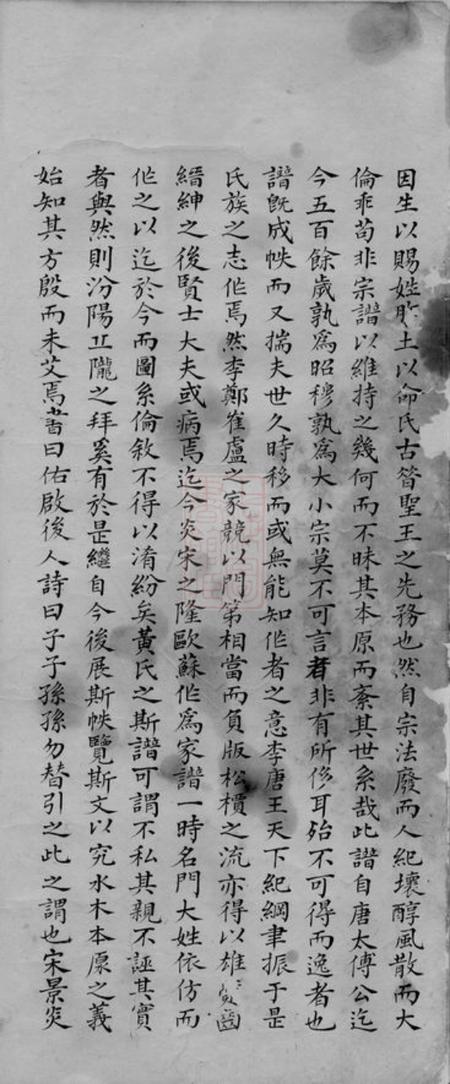 因生以賜姓胙土以命氏古昔聖王之先務也然自宗法廢而人紀壞醇風散而大
倫乖苟非宗譜以維持之幾何而不昧其本原而紊其世系哉此譜自唐太傅公迄
今五百餘歲孰爲昭穆孰爲大小宗莫不可言者非有所侈耳殆不可得而逸者也
譜旣成帙而又揣夫世久時移而或無能知作者之意李唐王天下紀綱聿振于是
氏族之志作焉然李鄭崔盧之家競以門第相當而負版松檟之流亦得以雄
縉紳之後賢士大夫或病焉迄今炎宋之隆歐蘇作爲家譜一時名門大姓依仿而
作之以迄於今而圖系倫敘不得以淆紛矣黃氏之斯譜可謂不私其親不誣其實
者與然則汾陽丘隴之拜奚有於是繼自今後展斯帙覽斯文以究水木本原之義
始知其方殷而未艾焉書曰佑啟後人詩曰子子孫孫勿替引之此之謂也宋景炎